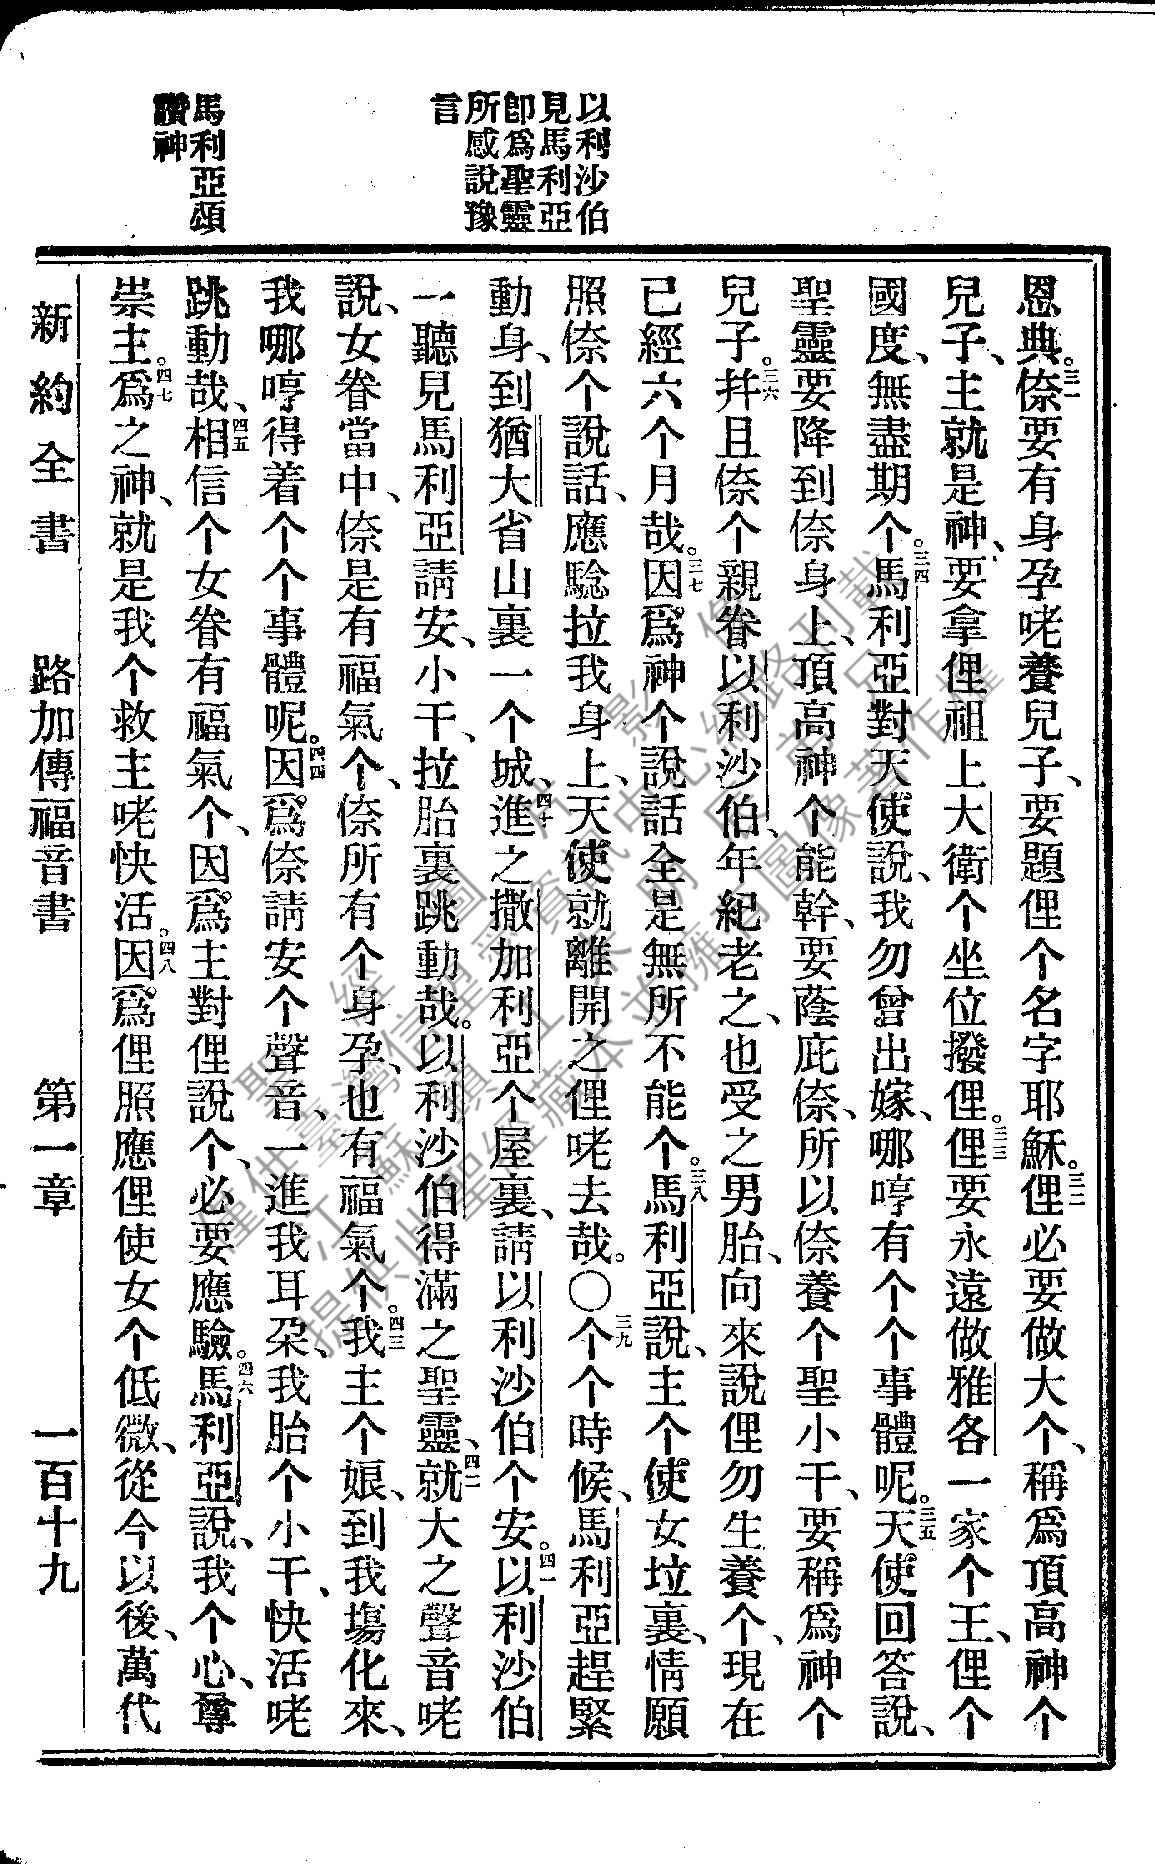 以利沙伯
見馬利亞
卽爲聖靈
所感說豫
言
馬利亞頌
讚神
恩典。三一倷要有身孕咾養兒子、要題俚个名字耶穌。三二俚必要做大个、稱爲頂高神个
兒子、主就是神、要拿俚祖上大衛个坐位撥俚。三三俚要永遠做雅各一家个王、俚个
國度、無盡期个。三四馬利亞對天使說、我勿曾出嫁、哪哼有个个事體呢。三五天使回答說、
聖靈要降到倷身上、頂高神个能幹、要蔭庇倷、所以倷養个聖小干、要稱爲神个
兒子。三六幷且倷个親眷以利沙伯、年紀老之、也受之男胎、向來說俚勿生養个、現在
已經六个月哉。三七因爲神个說話全是無所不能个。三八馬利亞說、主个使女垃裏、情願
照倷个說話、應騐拉我身上、天使就離開之俚咾去哉。〇三九个个時候、馬利亞趕緊
動身、到猶大省山裏一个城、四十進之撒加利亞个屋裏、請以利沙伯个安。四一以利沙伯
一聽見馬利亞請安、小干、拉胎裏跳動哉。以利沙伯得滿之聖靈、四二就大之聲音咾
說、女眷當中、倷是有福氣个、倷所有个身孕、也有福氣个。四三我主个娘、到我塲化來、
我哪哼得着个个事體呢。四四因爲倷請安个聲音、一進我耳朶、我胎个小干、快活咾
跳動哉、四五相信个女眷有福氣个、因爲主對俚說个、必要應驗。四六馬利亞說、我个心、尊
崇主。四七爲之神、就是我个救主咾快活。四八因爲俚照應俚使女个低微、從今以後、萬代
新約全書　路加傳福音書　第一章　一百十九
聖經圖片影像
僅供臺灣信望愛資訊中心網路刊載
提供此聖經藏本並擁有圖像著作權